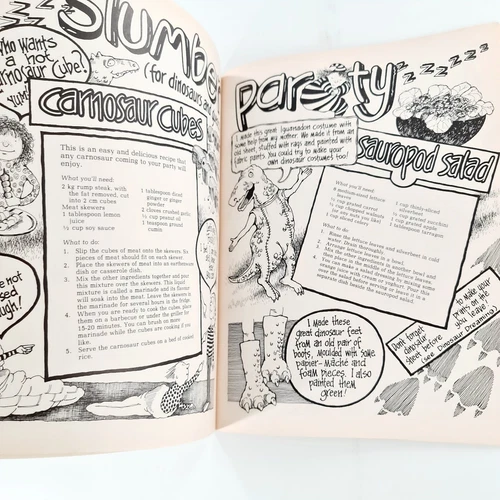 Slumber
(for dinosaurs and
Who wants
a hot
carnosaur cube?
Yum!
carnosaur cubes
This is an easy and delicious recipe that
any carnosaur coming to your party will
enjoy.
What you'll need:
2 kg rump steak, with
the fat removed, cut
into 2 cm cubes
Meat skewers
1 tablespoon lemon
juice
½ cup soy sauce
1 tablespoon diced
ginger or ginger
powder
2 cloves crushed garlic
¼ cup peanut oil
1 teaspoon ground
cumin
What to do:
1. Slip the cubes of meat onto the skewers. Six
pieces of meat should fit on each skewer.
2. Place the skewers of meat into an earthenware
dish or casserole dish.
3. Mix the other ingredients together and pour
this mixture over the skewers. This liquid
mixture is called a marinade and its flavour
will soak into the meat. Leave the skewers in
the marinade for several hours in the fridge.
4. When you are ready to cook, place
them on a barbecue or under the griller for
15-20 minutes. You can brush on more
marinade while the cubes are cooking if you
like.
5. Serve the carnosaur cubes on a bed of cooked
rice.
party
zzzzzzz
I made this great Iguanodon costume with
some help from my mother. We made it from an
old sheet, stuffed with rags and painted with
fabric paints. You could try to make your
own dinosaur costumes too!
sauropod salad
What you'll need:
lettuce
cup grated carrot
cup chopped walnuts
(or any nuts you like)
1 cup sliced celery
1 cup thinly-sliced
silverbeet
cup grated zucchini
cup grated apple
1 tablespoon tarragon
What to do:
1. Rinse the lettuce leaves and silverbeet in cold
water. Drain the leaves in a bowl.
2. Place the other ingredients in another bowl
I made these
great dinosaur feet
from an old pair of
boots, moulded with some
papier-mâché and
foam pieces. I also
painted them
green!
Don't forget
dinosaur
before
(see Dinosaur Dreaming)
to make your
prints for the
guests before